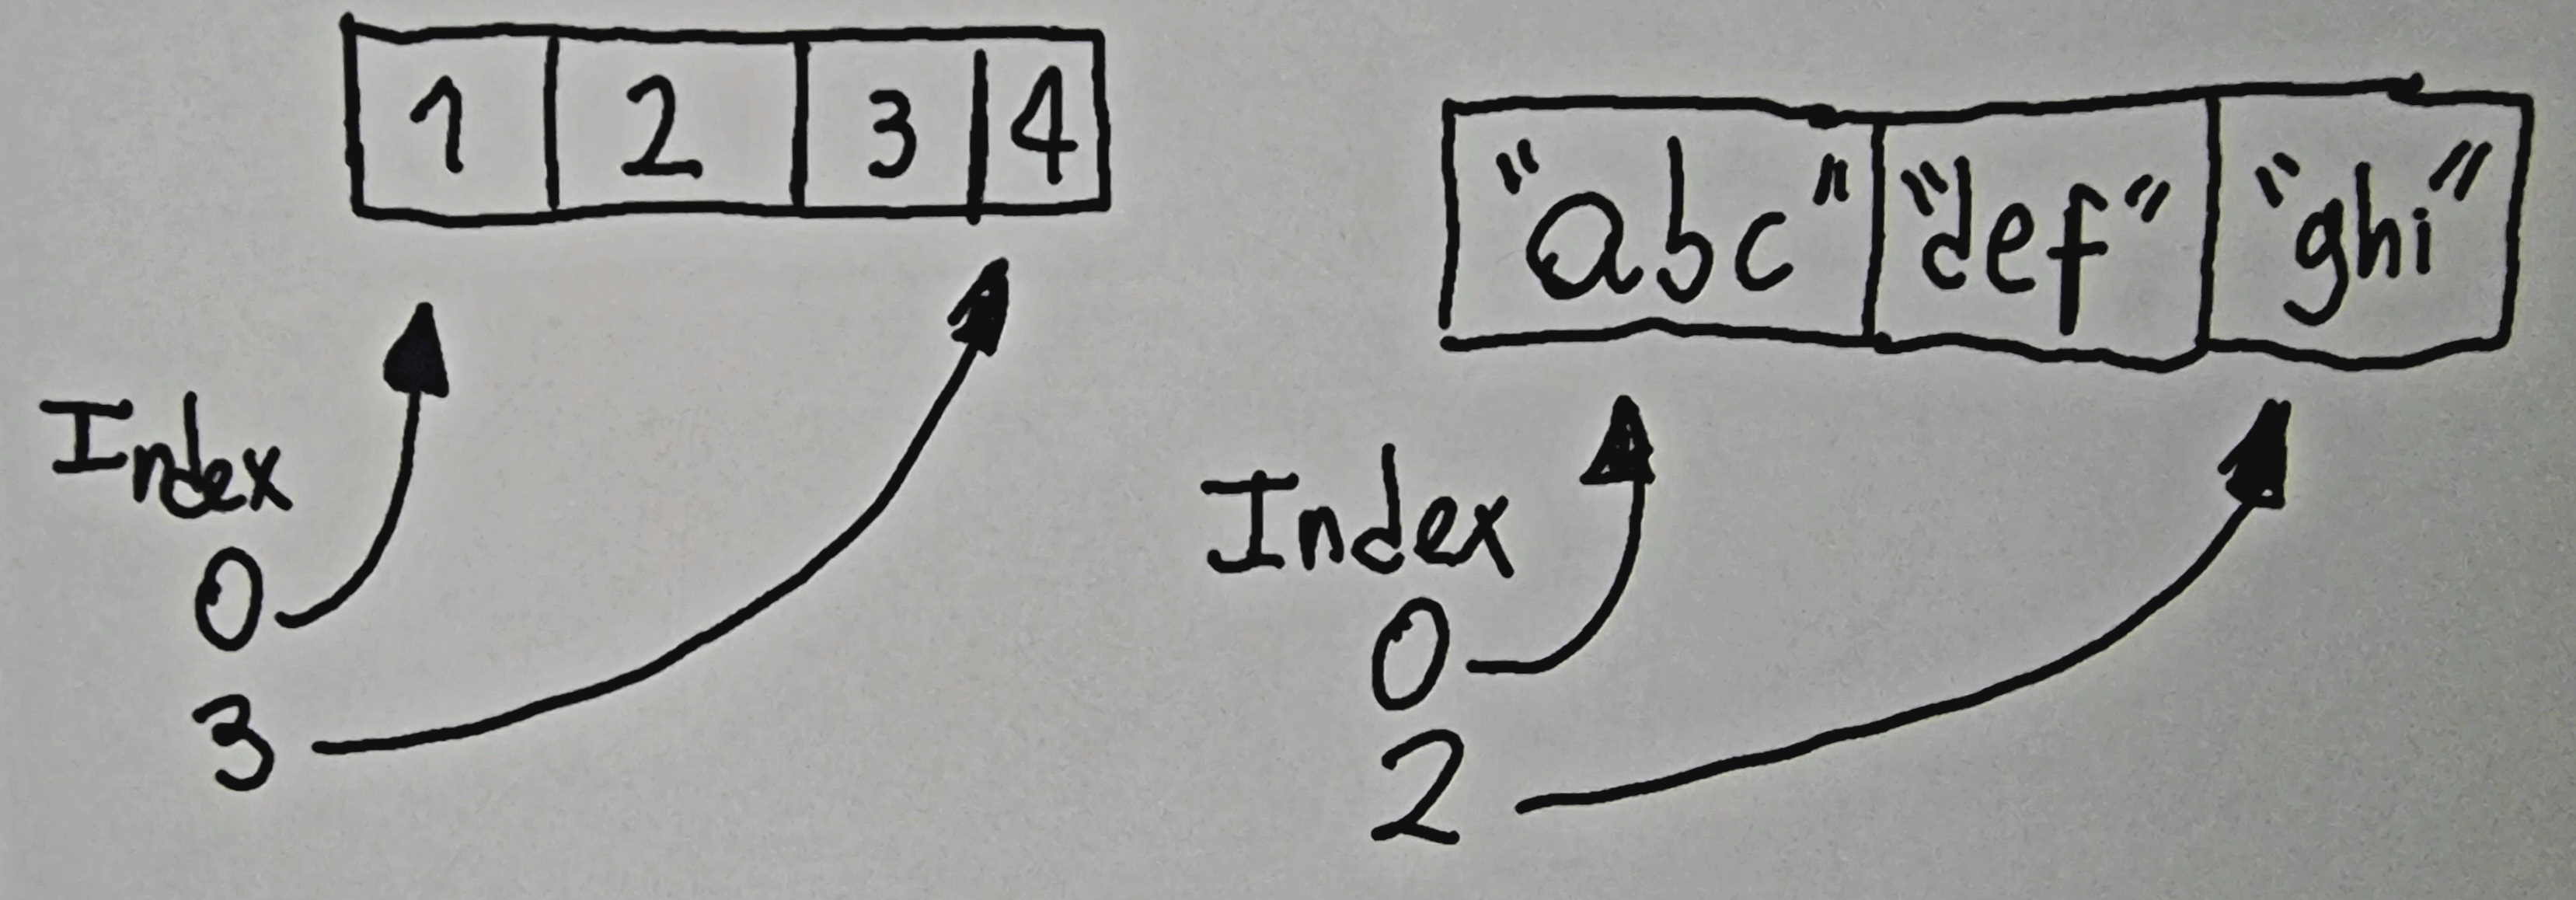 1 2 3 4
Index
0
3
"abc" "def" "ghi"
Index
0
2